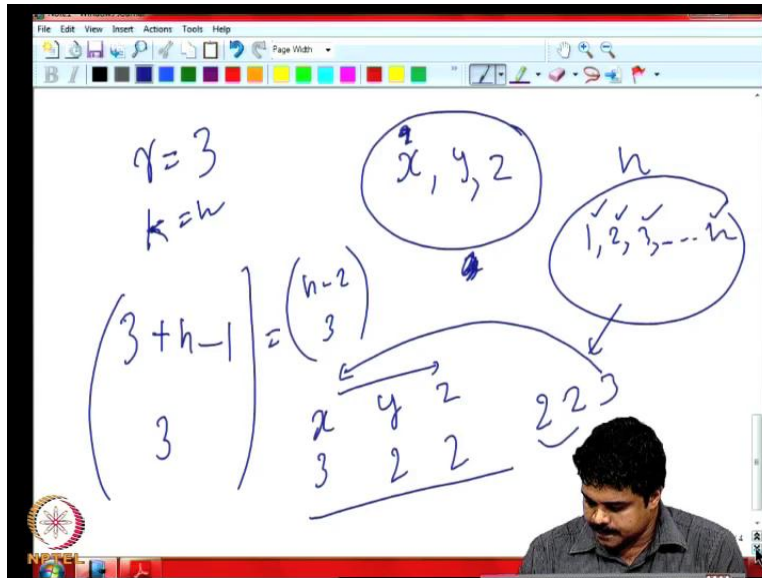 File Edit View Insert Actions Tools Help
Page Width
B I
r = 3
k = n
x, y, z
n
1, 2, 3, ---- n
(3 + n - 1
3) = (n - 2
3)
x y z
3 2 2
2 2 3
NPTEL